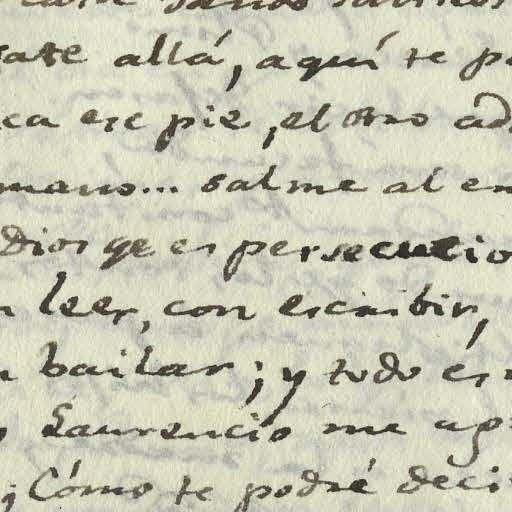 allá, aquí te
ese pie, el otro
mano... salme al
Dios qe es persecucio
leer, con escribir,
bailar; y todo es
Laurencio me
¿Cómo te podré deci